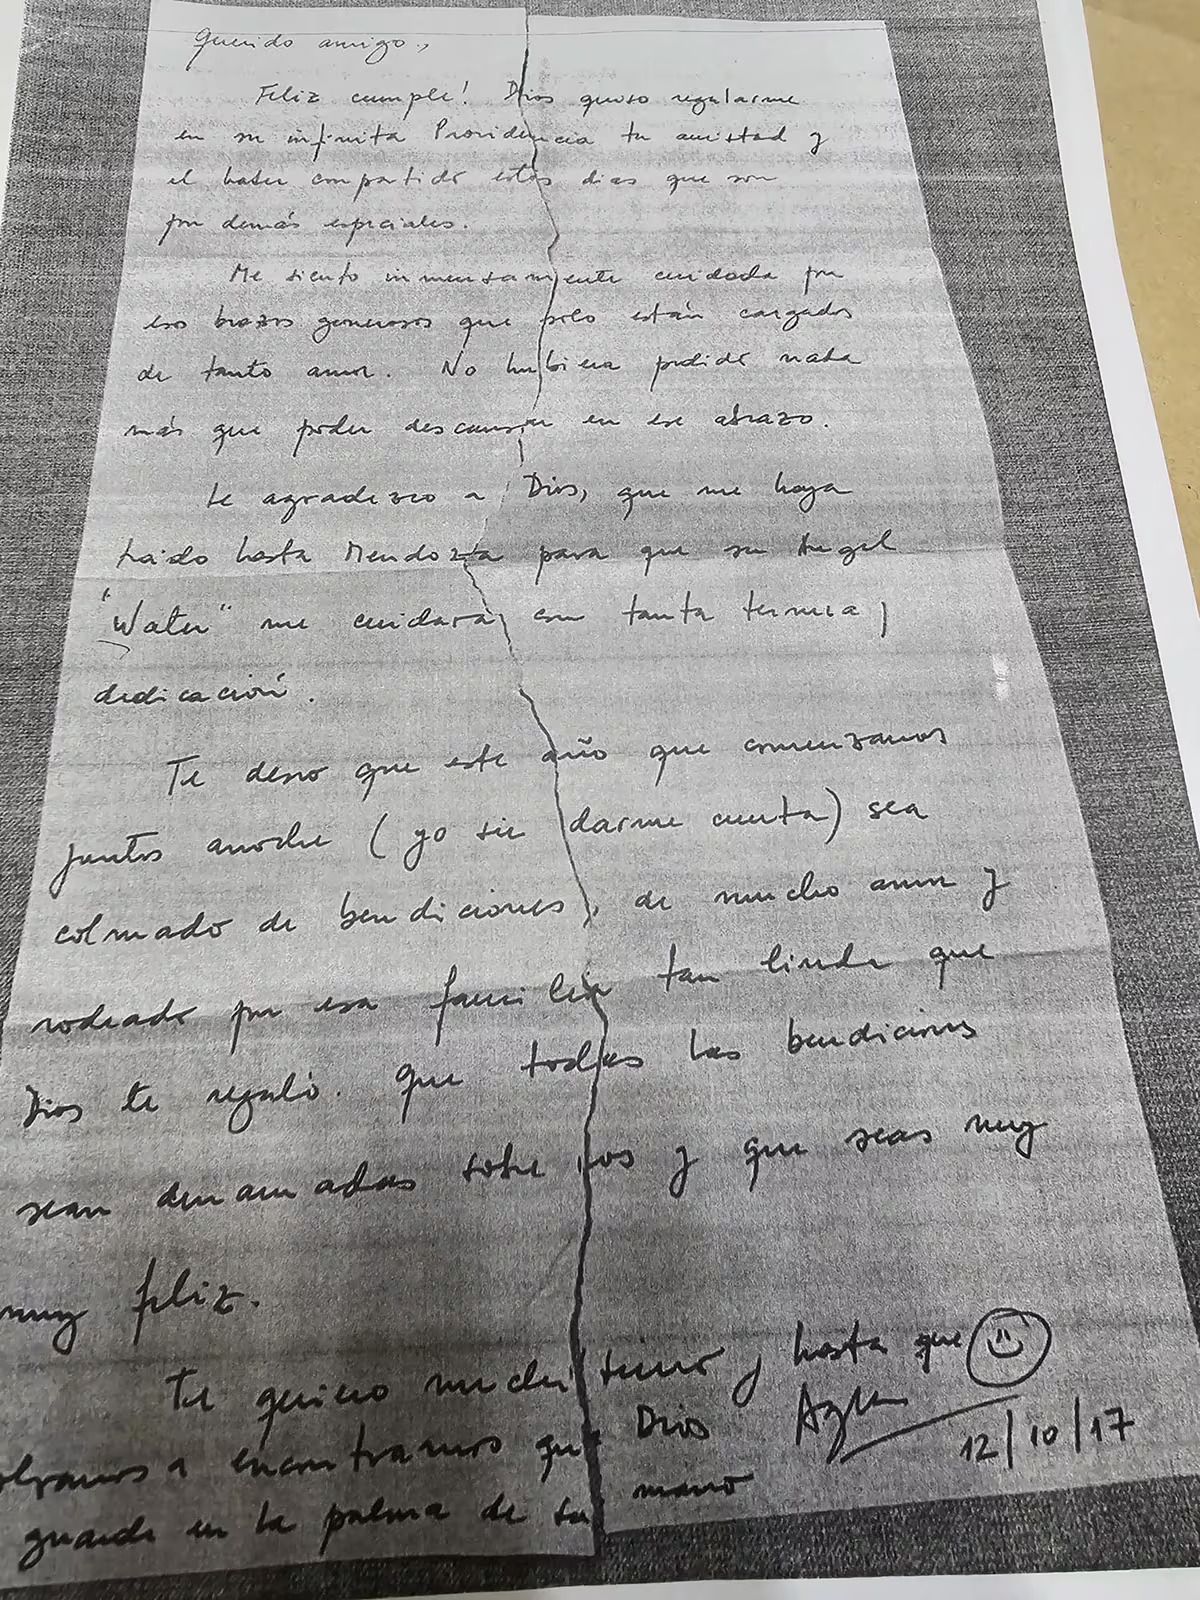 Querido amigo,
Feliz cumple! Dios quiso regalarme
en su infinita Providencia tu amistad y
el haber compartido estos dias que son
por demás especiales.
Me siento inmensamente cuidada por
eso brazos generosos que solo están cargados
de tanto amor. No hubiera pedido nada
más que poder descansar en ese abrazo.
Le agradezco a Dios, que me haya
traido hasta Mendoza para que su Angel
"Walter" me cuidara con tanta ternura y
dedicación.
Te deseo que este año que comenzamos
juntos anoche (yo sin darme cuenta) sea
colmado de bendiciones, de mucho amor y
rodeado por esa familia tan linda que
Dios te regaló. Que todas las bendiciones
sean derramadas sobre vos y que seas muy
muy feliz.
Te quiero mucho y hasta que
volvamos a encontrarnos que Dios
guarde en la palma de su mano
12/10/17